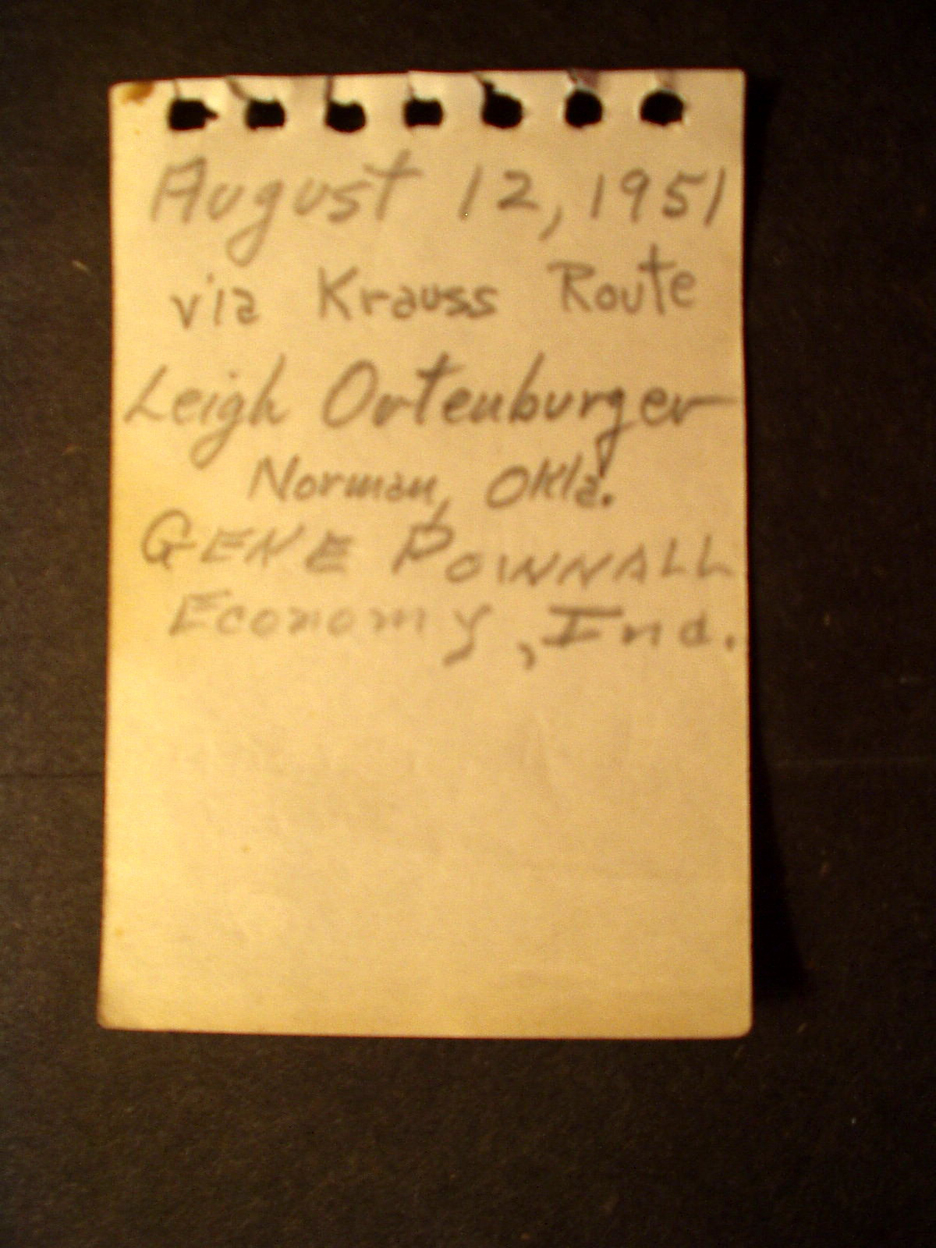 August 12, 1951
via Krauss Route
Leigh Ortenburger
Norman, Okla.
GENE POWNALL
Economy, Ind.